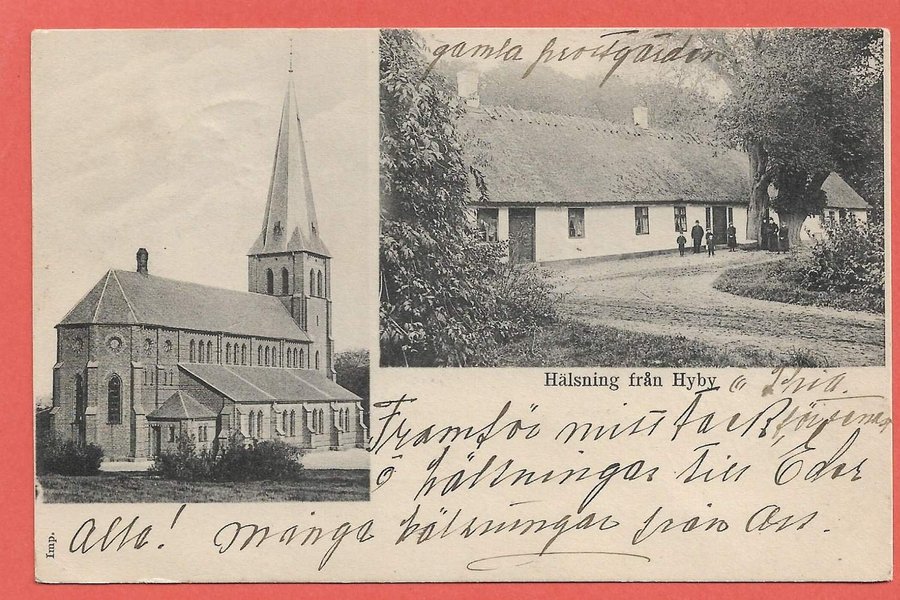 gamla prostgården
Hälsning från Hyby
Framför mitt Tack
o hälsningar till Eder
Alla! Många hälsningar från oss.
Imp.